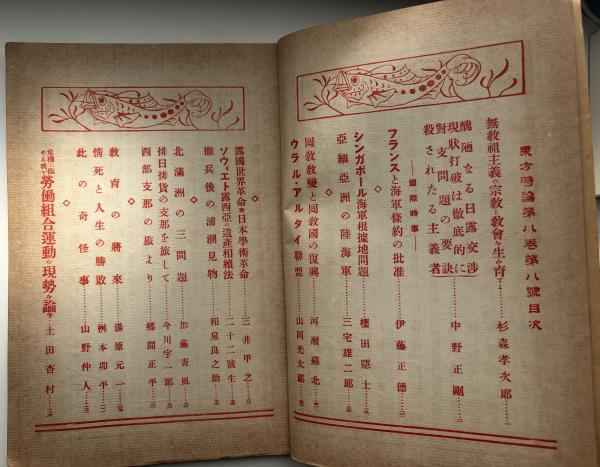 東方時論第八卷第八號目次
無敎祖主義の宗敎と敎會を生み育てよ……杉森孝次郎…
醜陋なる日露交涉
現狀打破は徹底的に
對支問題の要訣
殺されたる主義者……中野正剛…
――國際時事――
フランスと海軍條約の批准……伊藤正德…
シンガポール海軍根據地問題……櫻田隱士…
亞細亞洲の陸海軍……三宅雄二郎…
回敎敎變と回敎國の復興……河瀨蘇北…
ウラル・アルタイ聯盟……山岡光太郎…
露國世界革命か日本學術革命……三井甲之…
ソヴィエト露西亞の遺產相續法……二十二號生…
撤兵後の浦潮見物……和泉良之助…
北滿洲の三問題……加藤靑風…
排日排貨の支那を旅して……今川宇一郎…
西部支那の旅より……鄉間正平…
敎育の將來……湯原元一…
情死と人生の勝敗……桝本卯平…
此の奇怪事……山野仲人…
危機に臨める我が勞働組合運動の現勢を論ず…土田杏村…